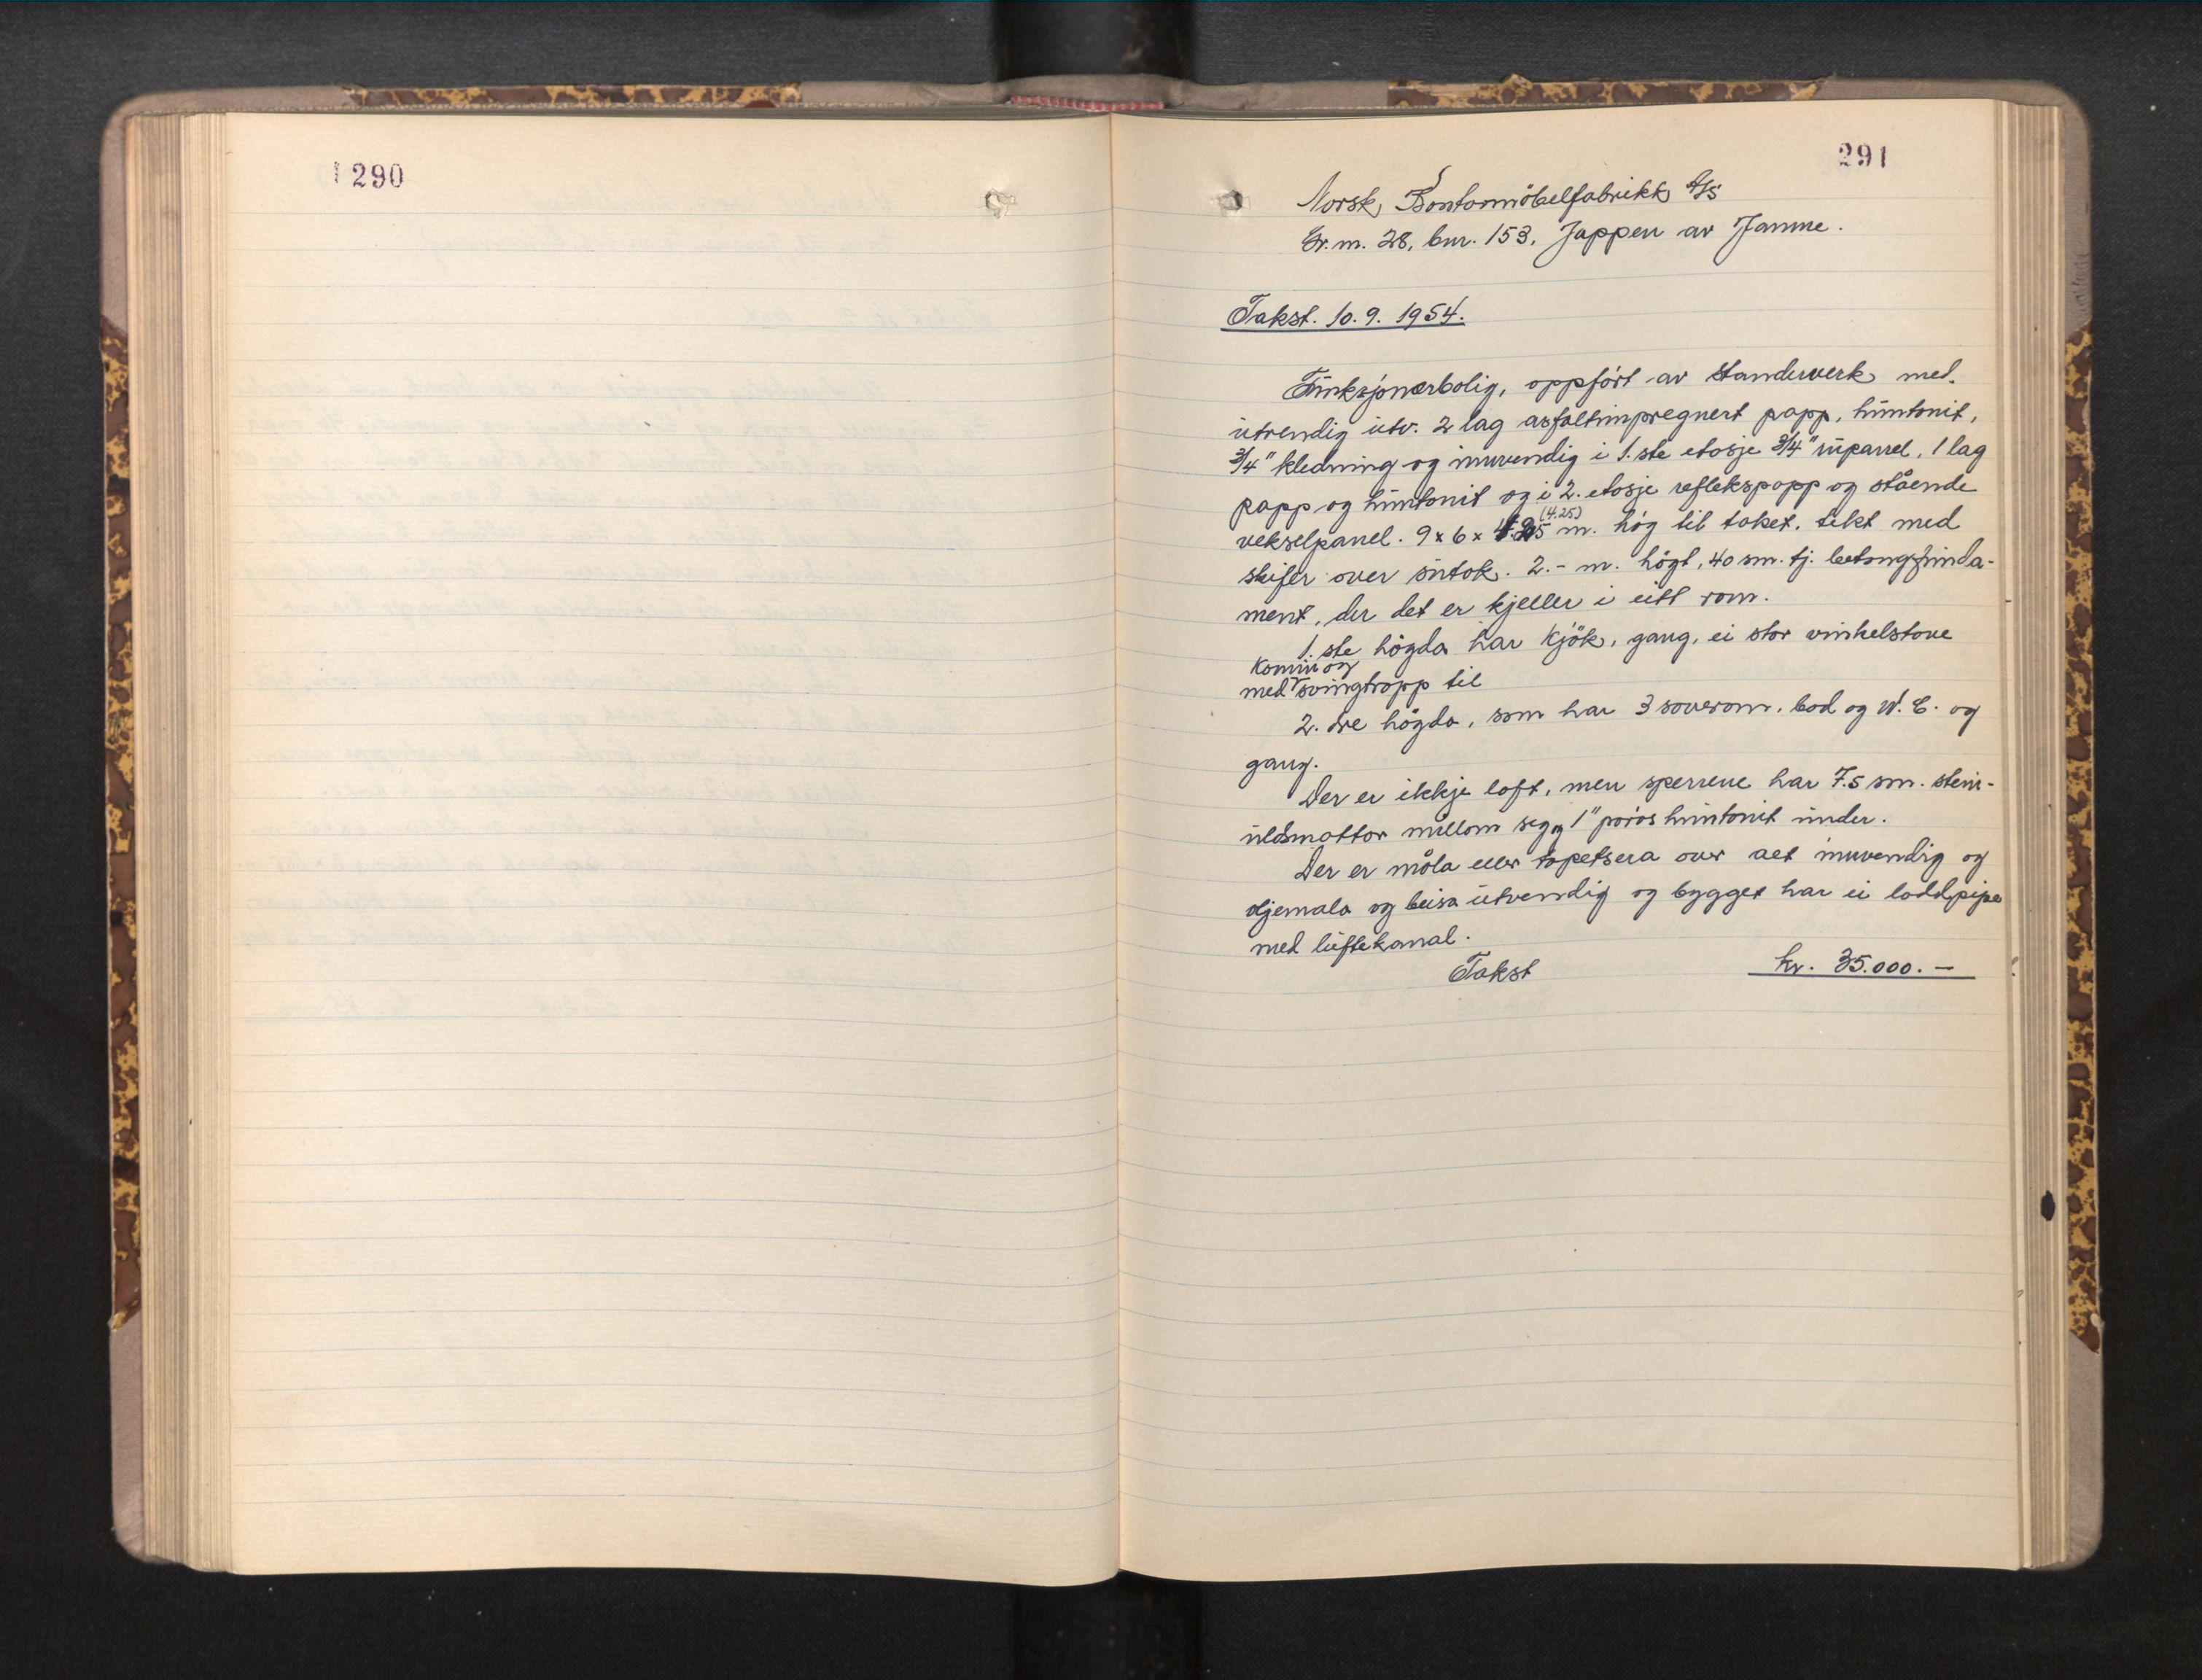 290
291
Norsk Kontormöbelfabrikk A/S
Gr. nr. 28, bnr. 153, Jappen av Janne.
Takst. 10. 9. 1954.
Funksjonærbolig, oppført av standerverk med
utvendig utv. 2 lag asfaltimpregnert papp, huntonit,
3/4" kledning og innvendig i 1. ste etasje 3/4" rupanel, 1 lag
papp og huntonit og i 2. etasje reflekspapp og stående
vekselpanel. 9 x 6 x 4.25 (4.25) m. høg til taket, tekt med
skifer over sutak. 2.- m. högt, 40 sm. tj. betongfunda-
ment, der det er kjeller i eitt rom.
1. ste högda har kjök, gang, ei stor vinkelstove
kamin og
med svingtrapp til
2. dre högda, som har 3 soverom, bod og W. C. og
gang.
Der er ikkje loft, men sperrene har 7.5 sm. stein-
uldsmattor millom seg og 1" porøs huntonit under.
Der er måla eller tapetsera over alt innvendig og
oljemala og beisa utvendig og bygget har ei loddpipe
med luftekanal.
Takst kr. 35.000.-